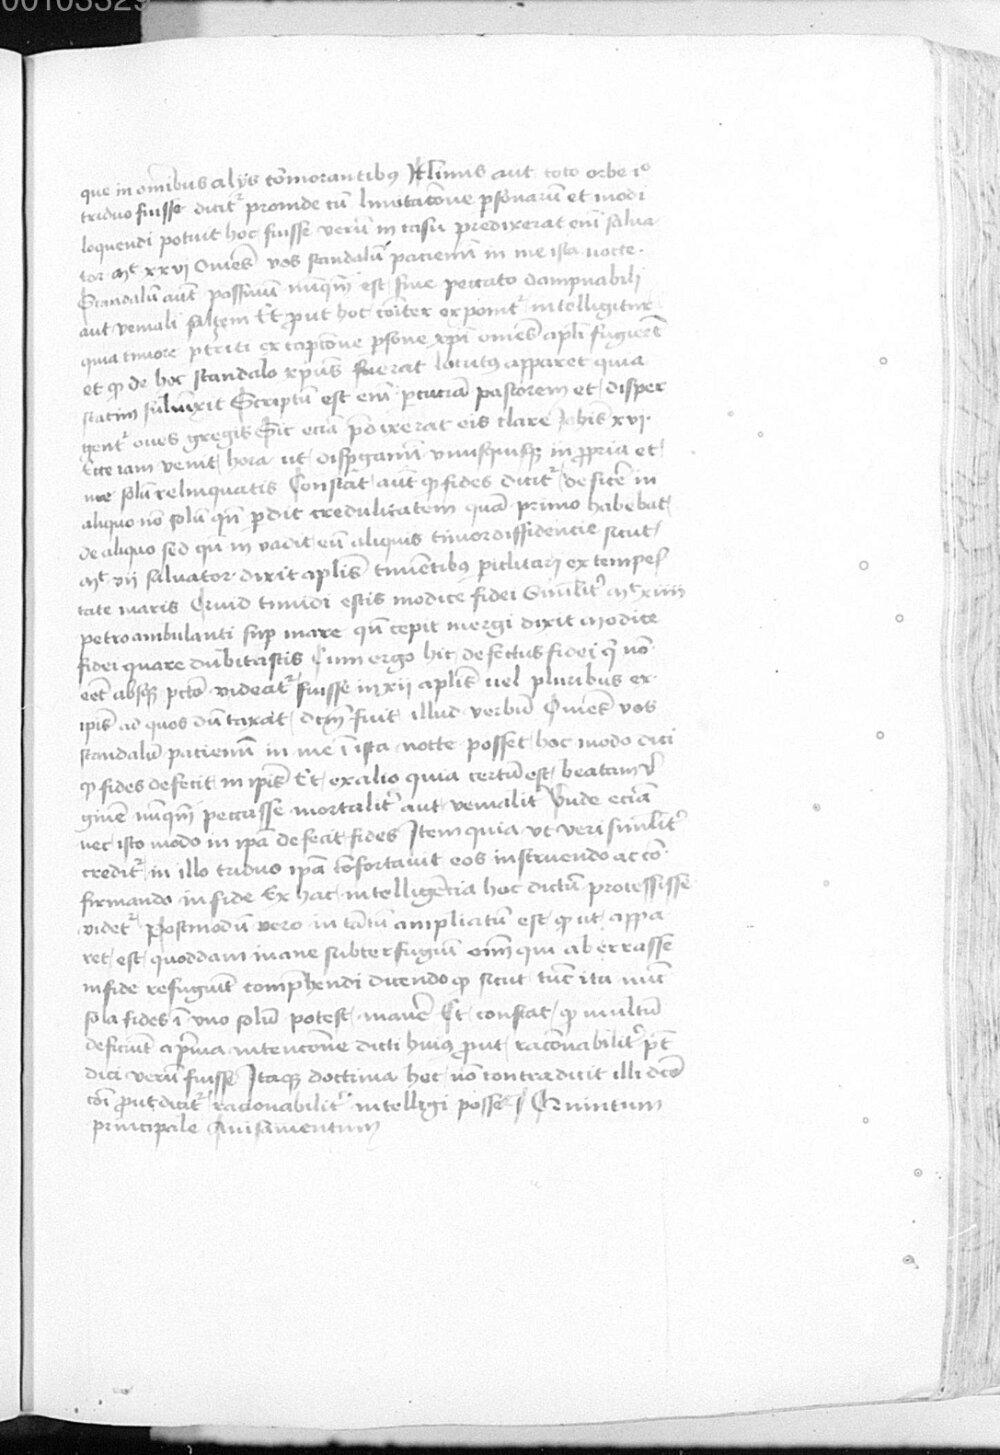 00103329
que in omībus alijs cōmorantibus aut toto orbe
triduo fuisse dicit proinde cū limitacōne psonarū et modi
loquendi potuit hoc fuisse verū in casu predixerat eni salua
tor Mt xxvi Omēs vos scandalū paciemī in me ista nocte
Scandalū aut passiuū nūqm est sine peccato dampnabili
aut veniali saltem Et put hoc cōiter exponit intelligitur
quia timore ptriti ex capcōne psone xpi omēs apli fugierūt
et qp de hoc scandalo xpus fuerat locutus apparet quia
statim subiūxit Scriptū est eni pcuciā pastorem et disper
gent oues gregis Sic eciā pdixerat eis clare Johis xvi
Ecce iam venit hora ut dispgamī vnusquisq in ppria et
me solū relinquatis Constat aut qp fides dicit deficere in
aliquo nō solū qn pdit credulitatem quā primo habebat
de aliquo sed qn inuadit eū aliquis timor diffidencie sicut
Mt vii saluator dixit aplis timentibus piclitari ex tempes
tate maris Quid timidi estis modice fidei Similit Mt xiiii
petro ambulanti sup mare qn cepit mergi dixit modice
fidei quare dubitastis Cum ergo hic defectus fidei q nō
eet absq pctō videat fuisse in xii aplis uel pluribus ex
ipis ad quos dūtaxat dcm fuit illud verbū Omēs vos
scandalū paciemī in me ī ista nocte posset hoc modo dici
qp fides defecit in ipis Et ex alio quia certū est beatam vir
ginē nūqm peccasse mortalit aut venialit Vnde eciā
nec isto modo in ipā defecit fides Item quia vt verisimilit
credit in illo triduo ipā cōfortauit eos instruendo ac cō
firmando in fide Ex hac intelligēcia hoc dictū processisse
videt Postmodū vero in tātū ampliatū est qp ut appa
ret est quoddam inane subterfugiū oīm qui aberrasse
in fide refugiūt comphendi dicendo qp sicut tūc ita nūc
sola fides ī vno solū potest manere Et constat qp multū
deficiūt a pma intencōne dicti huius put racōnabilit pt
dici verū fuisse Itaq doctrina hec nō contradicit illi dcō
cōi put dicit racionabilit intelligi posse Quintum
principale Auisamentum